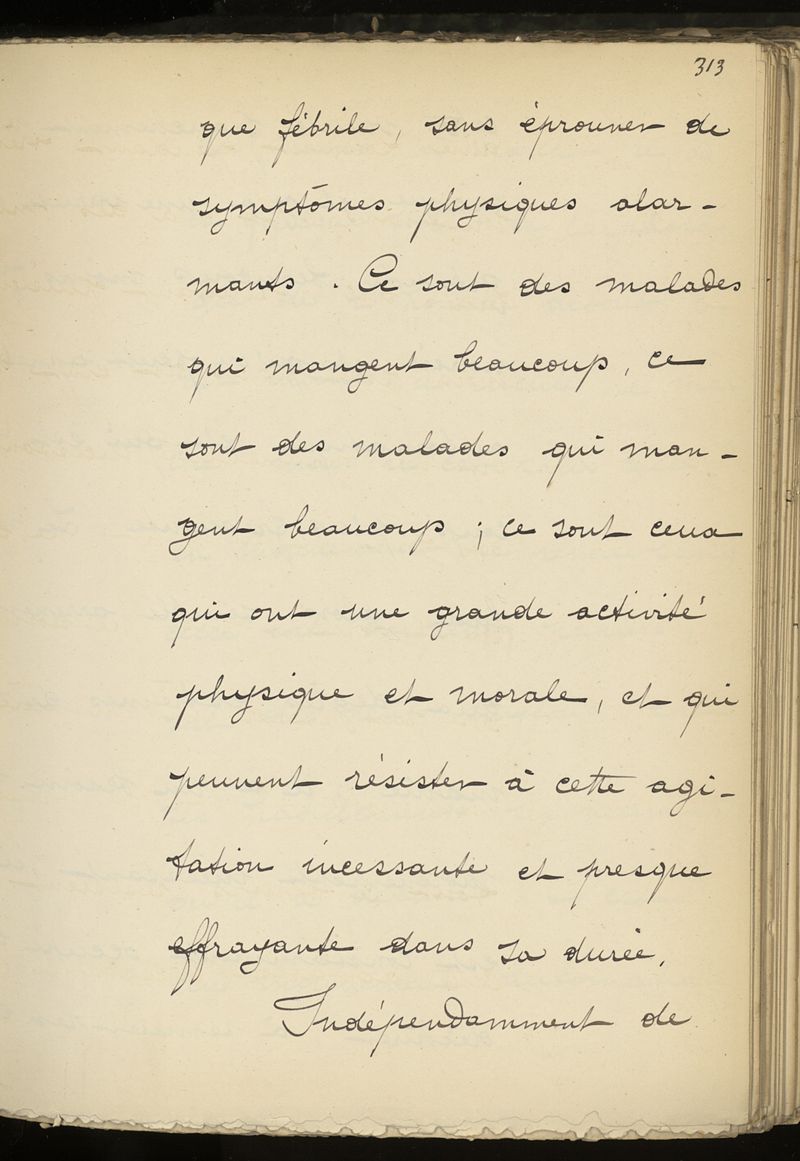 313
que fébrile, sans éprouver de
symptômes physiques alar-
mants. Ce sont des malades
qui mangent beaucoup, ce
sont des malades qui man-
gent beaucoup; ce sont ceux
qui ont une grande activité
physique et morale, et qui
peuvent résister à cette agi-
tation incessante et presque
effrayante dans sa durée.
Indépendamment de